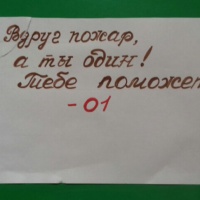 Вдруг пожар,
а ты один!
Тебе поможет
-01